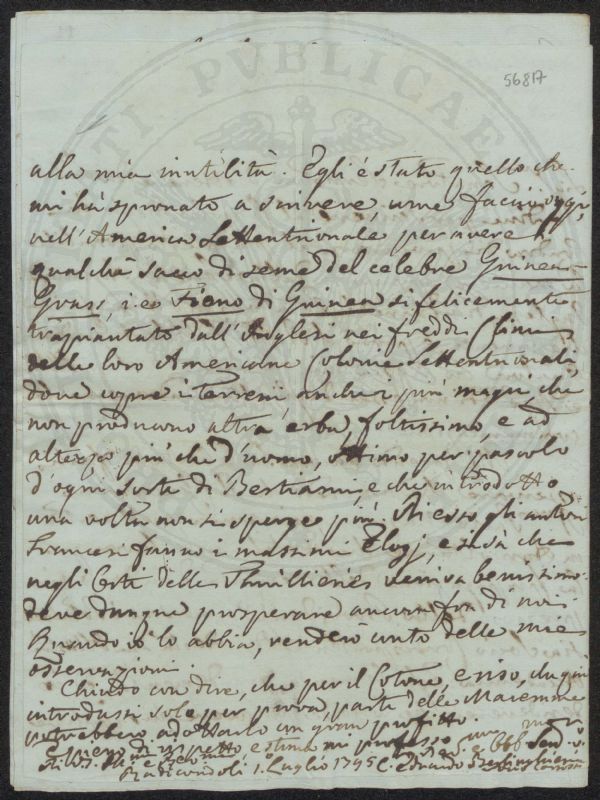 56817
alla mia inutilità. Egli é stato quello che
mi hà spronato a scrivere, come faccio oggi,
nell'America Settentrionale per avere
qualchè sacco di seme del celebre Guinea-
Grass, i.e. Fieno di Guinea si felicemente
trapiantato dall'Inglesi nei freddi Climi
delle loro Americane Colonie Settentrionali,
dove copre i terreni anche i più magri, che
non producono altra erba, foltissimo, e ad
altezza più che d'uomo, ottimo per pascolo
d'ogni sorte di Bestiami, e che introdotto
una volta non si sperge più. Di esso gli autori
Francesi fanno i massimi Elogj, e si sà che
negli Orti delle Thuilleries veniva benissimo.
deve dunque prosperare ancora fra di noi.
Quando io lo abbia, renderò conto delle mie
osservazioni.
Chiudo con dire, che per il Cotone, e riso, che quì
introdussi solo per prova, parte delle Maremme
potrebbero adottarlo con gran profitto.
e pieno di rispetto e stima mi professo
Radicondoli 1. Luglio 1795